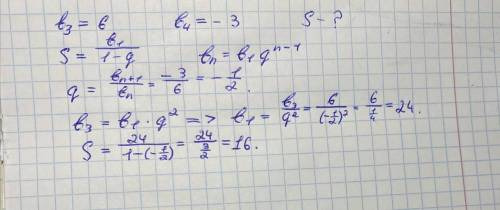 b₃ = 6 b₄ = - 3 S - ?
S = b₁/(1-q) bₙ = b₁ qⁿ⁻¹
q = bₙ₊₁/bₙ = -3/6 = - 1/2.
b₃ = b₁ · q² => b₁ = b₃/q² = 6/(-1/2)² = 6/(1/4) = 24.
S = 24/(1-(-1/2)) = 24/(3/2) = 16.